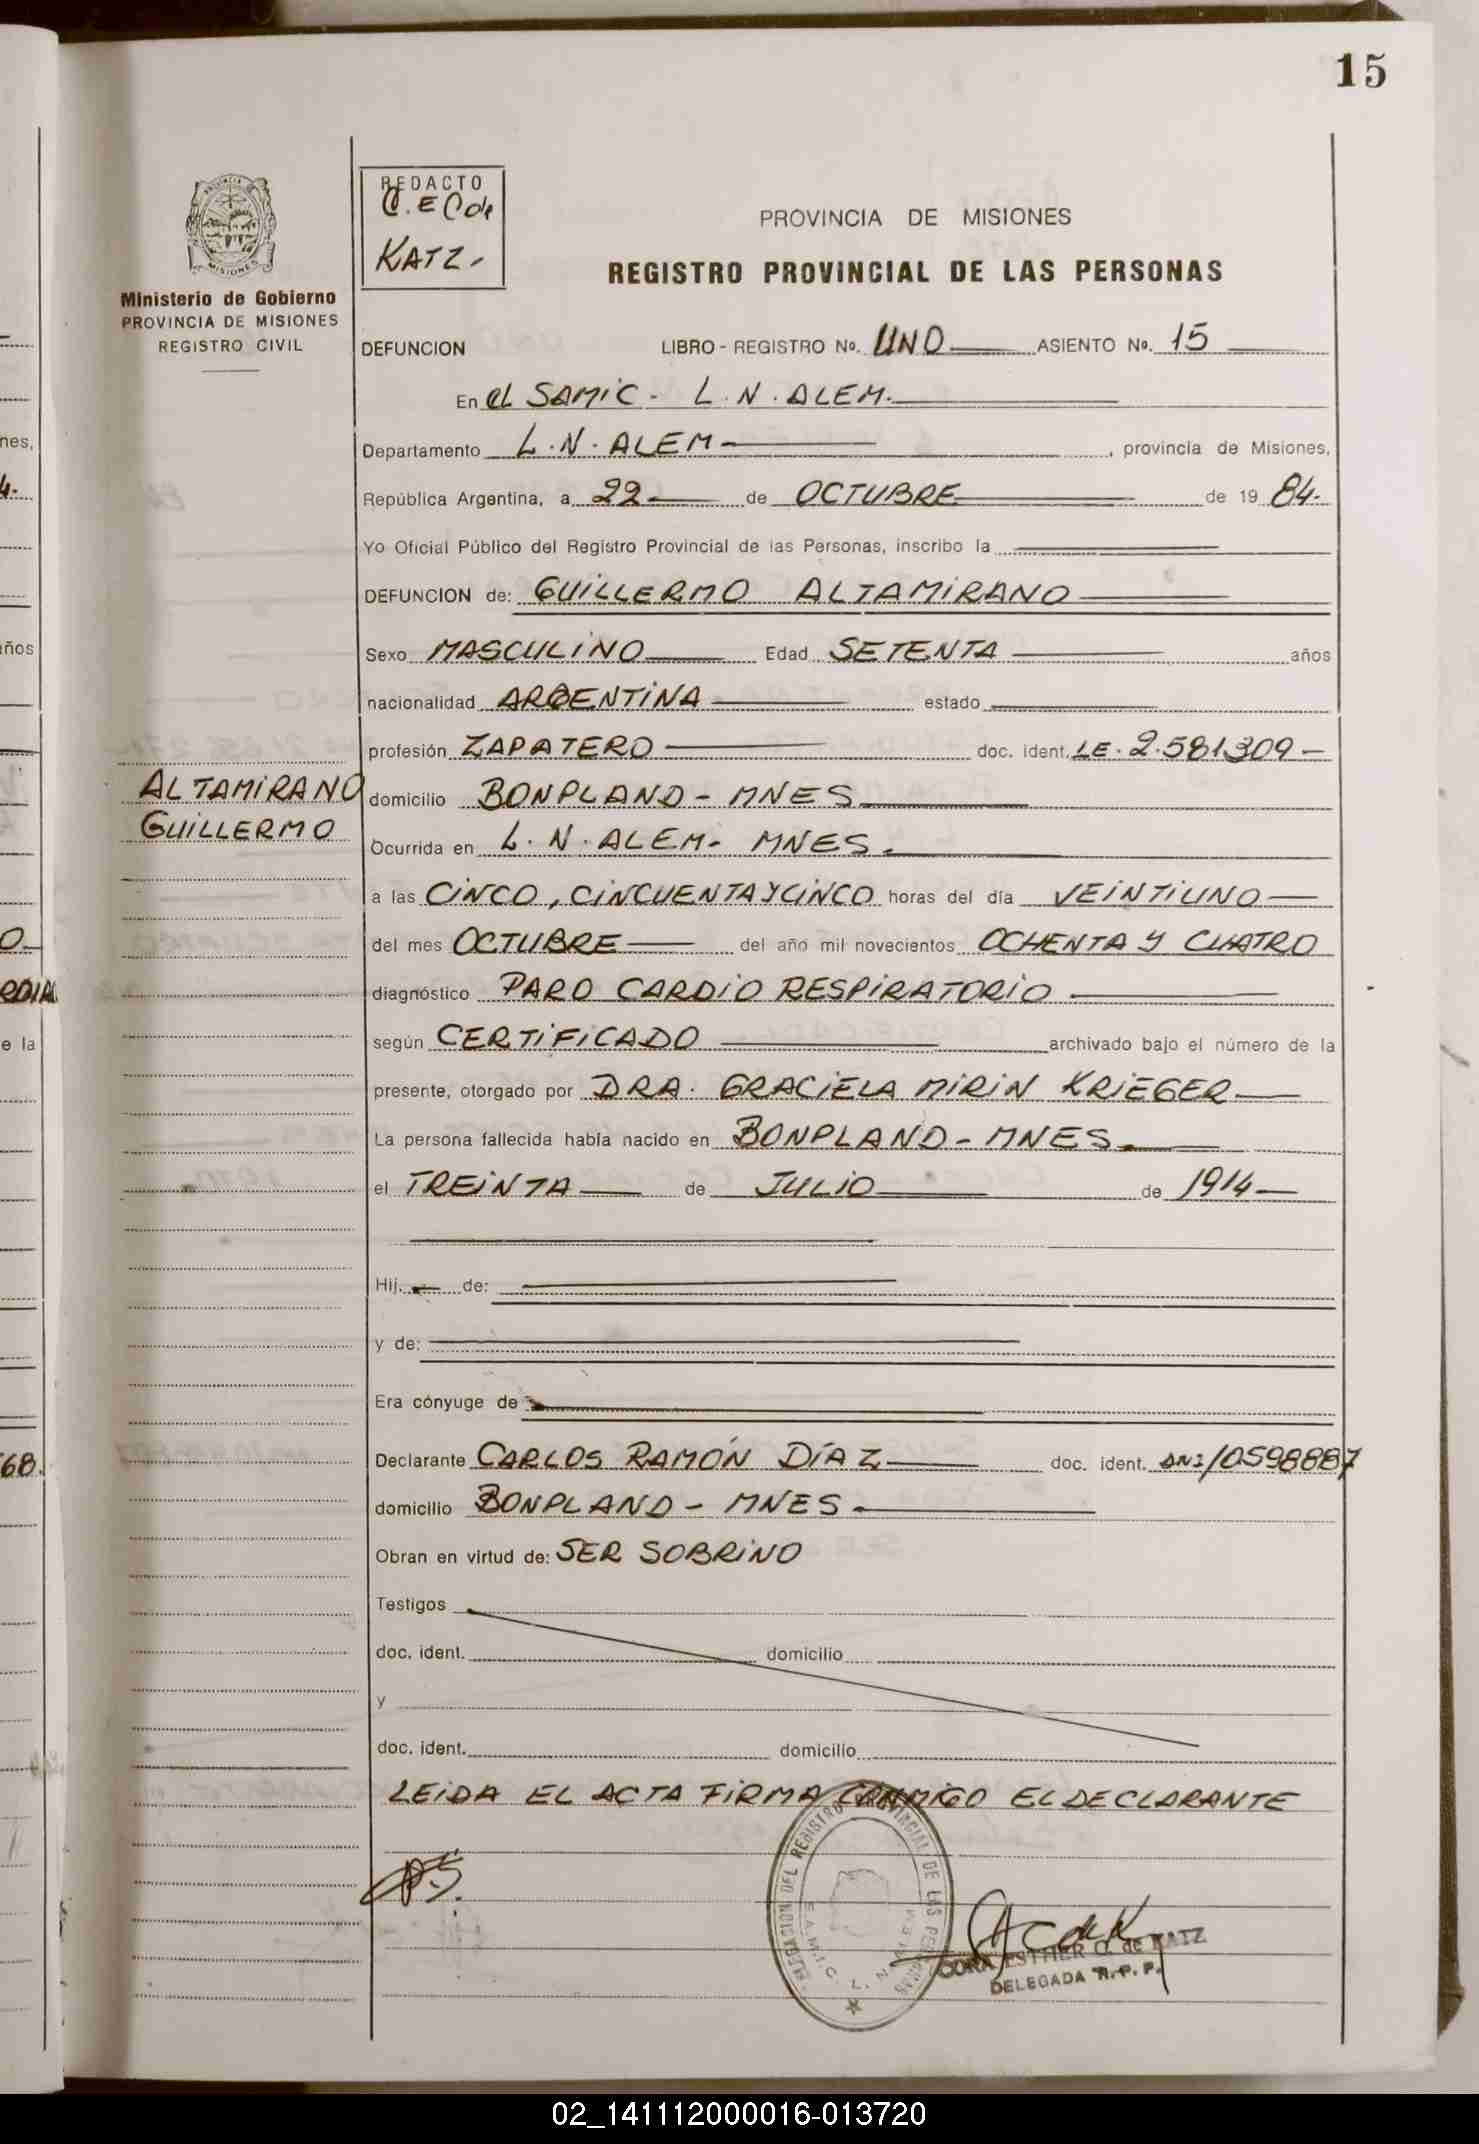 15
PROVINCIA DE
MISIONES
Ministerio de Gobierno
PROVINCIA DE MISIONES
REGISTRO CIVIL
REDACTO
KATZ.
PROVINCIA DE MISIONES
REGISTRO PROVINCIAL DE LAS PERSONAS
DEFUNCION LIBRO - REGISTRO No. UNO ASIENTO No. 15
En el SAMIC - L.N. ALEM.
Departamento L.N. ALEM , provincia de Misiones,
República Argentina, a 22 de OCTUBRE de 19 84.
Yo Oficial Público del Registro Provincial de las Personas, inscribo la
DEFUNCION de: GUILLERMO ALTAMIRANO
Sexo MASCULINO Edad SETENTA años
nacionalidad ARGENTINA estado
profesión ZAPATERO doc. ident. LE. 2.581309
ALTAMIRANO
GUILLERMO
domicilio BONPLAND - MNES
Ocurrida en L.N. ALEM - MNES.
a las CINCO, CINCUENTA Y CINCO horas del día VEINTIUNO
del mes OCTUBRE del año mil novecientos OCHENTA Y CUATRO
diagnóstico PARO CARDIO RESPIRATORIO
según CERTIFICADO archivado bajo el número de la
presente, otorgado por DRA. GRACIELA MIRIN KRIEGER
La persona fallecida había nacido en BONPLAND - MNES
el TREINTA de JULIO de 1914
Hij. de:
y de:
Era cónyuge de
Declarante CARLOS RAMÓN DÍAZ doc. ident. DNI 10598887
domicilio BONPLAND - MNES
Obran en virtud de: SER SOBRINO
Testigos
doc. ident. domicilio
y
doc. ident. domicilio
LEIDA EL ACTA FIRMA CONMIGO EL DECLARANTE
DELEGACION DEL REGISTRO PROVINCIAL DE LAS PERSONAS
S.A.M.I.C. L. N. ALEM
CORA ESTHER O. de KATZ
DELEGADA R.P.P.
nes,
4.
años
O
RDIA
e la
68.
02_141112000016-013720